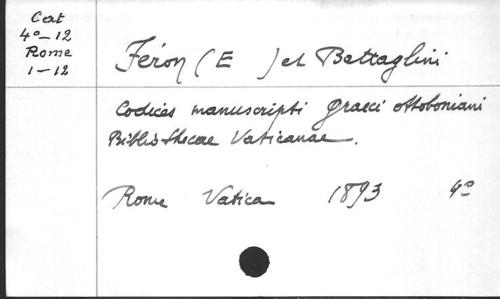 Cat
4°-12
Rome
1-12
Féron (E ) et Battaglini
Codices manuscripti graeci ottoboniani
Bibliothecae Vaticanae.
Rome Vatica 1893 4°